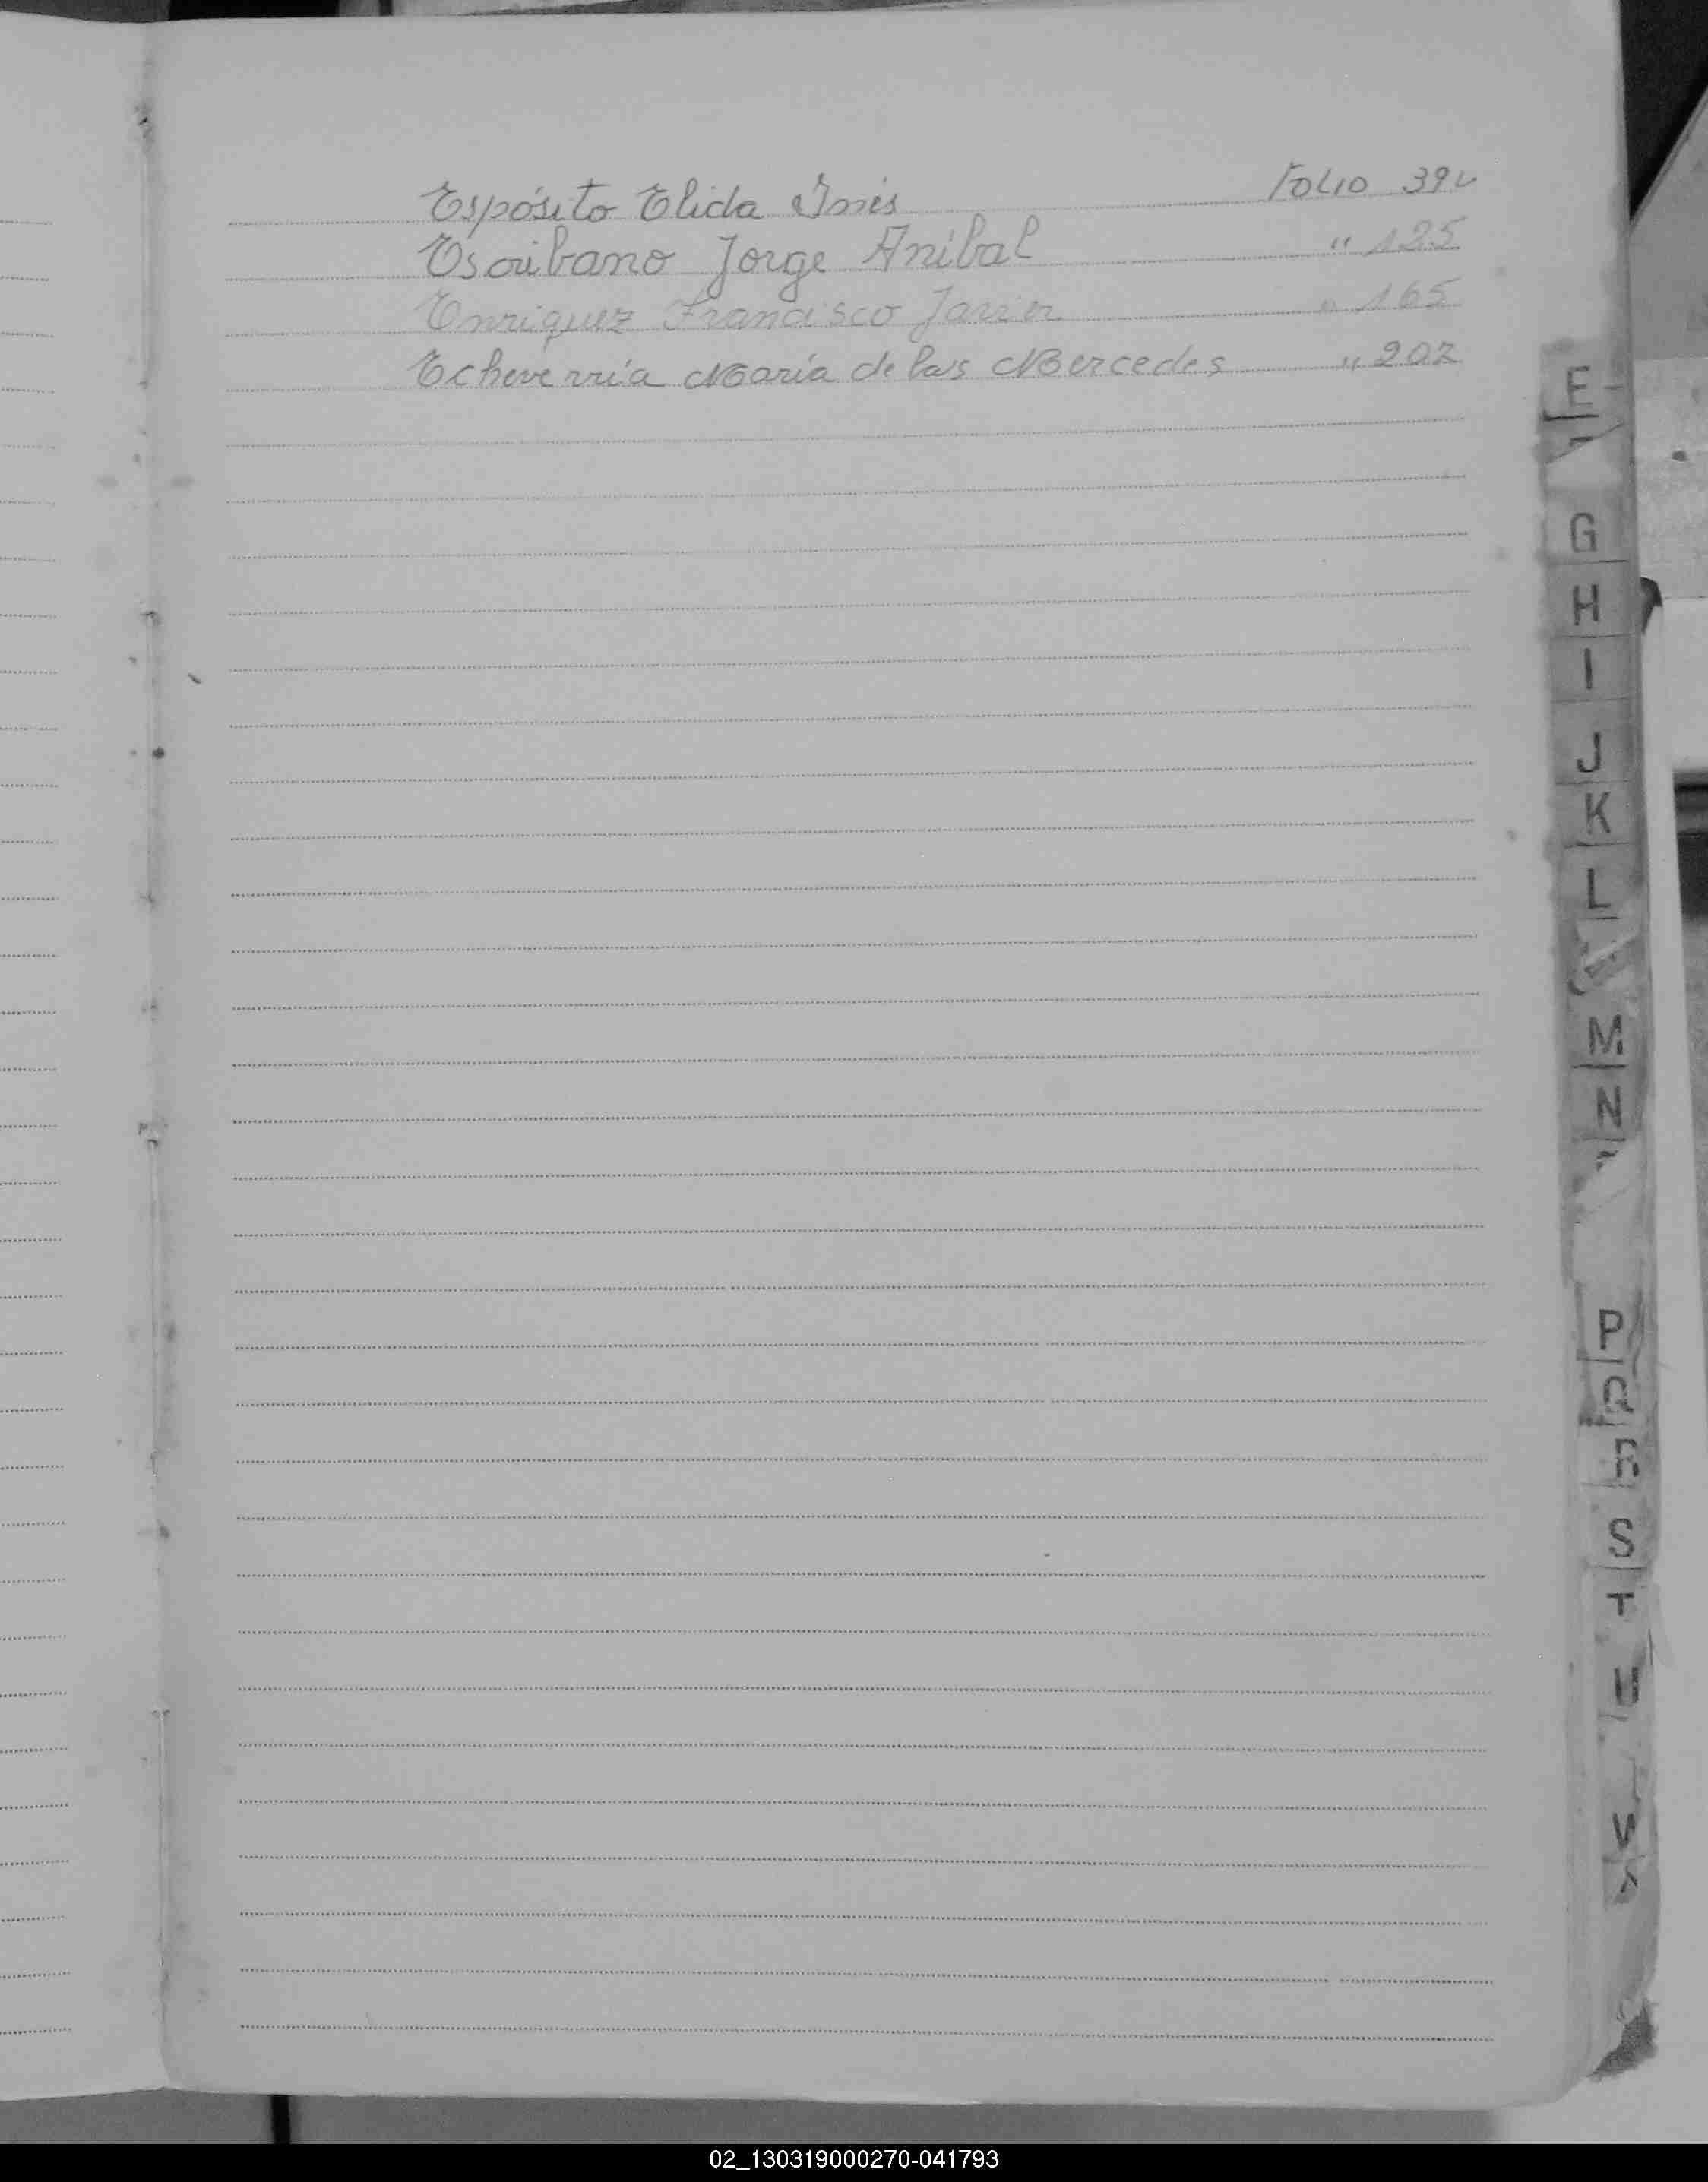 Espósito Elida Inés Folio 39v
Escribano Jorge Anibal " 125
Enriquez Francisco Javier " 165
Echeverría María de las Mercedes " 202
E
G
H
I
J
K
L
M
N
P
Q
R
S
T
U
02_130319000270-041793